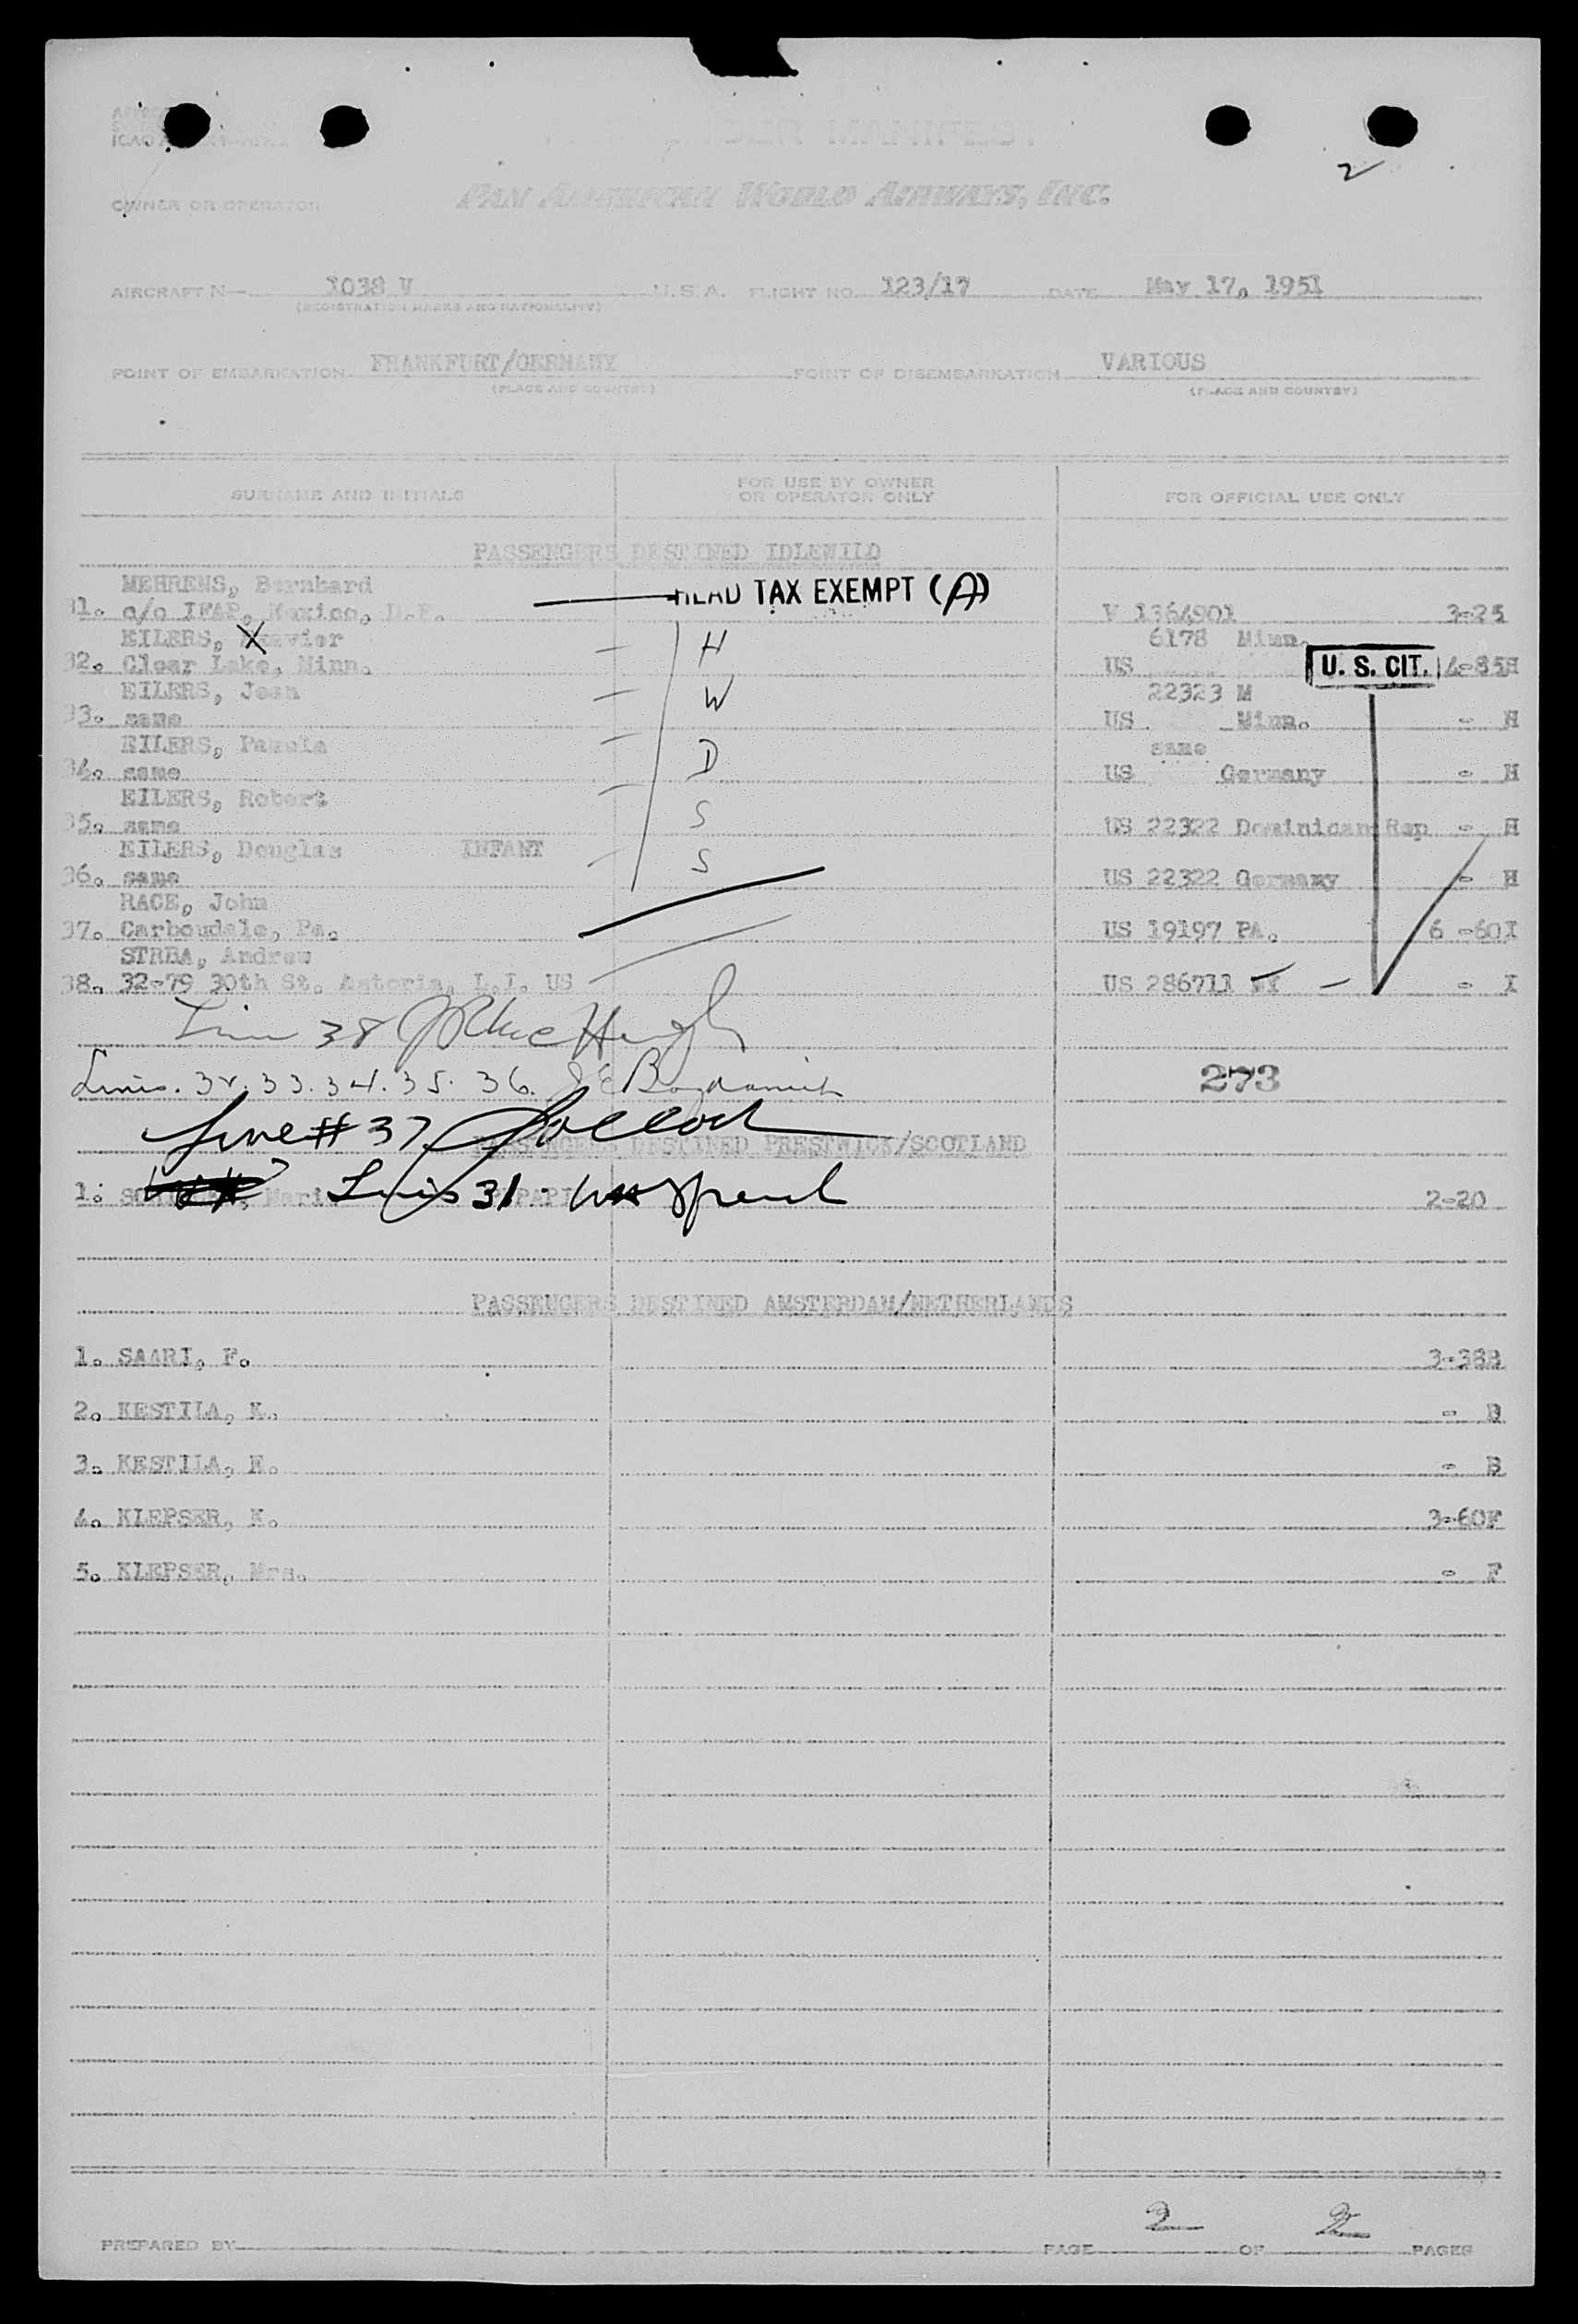 ICAO
2
OWNER OR OPERATOR PAN AMERICAN WORLD AIRWAYS, INC.
AIRCRAFT N— 1038 V U. S. A. FLIGHT NO. 123/17 DATE May 17, 1951
(REGISTRATION MARKS AND NATIONALITY)
POINT OF EMBARKATION FRANKFURT/GERMANY POINT OF DISEMBARKATION VARIOUS
(PLACE AND COUNTRY) (PLACE AND COUNTRY)
SURNAME AND INITIALS FOR USE BY OWNER OR OPERATOR ONLY FOR OFFICIAL USE ONLY
PASSENGERS DESTINED IDLEWILD
MEHRENS, Bernhard HEAD TAX EXEMPT (A)
31. c/o IFAP, Mexico, D.F. V 1364901 3-25
EILERS, X H 6178 Minn.
32. Clear Lake, Minn. US U. S. CIT. 4-85H
EILERS, Jean W 22323 M
33. same US Minn. - H
EILERS, Pamela D same
34. same US Germany - H
EILERS, Robert S
35. same US 22322 Dominican Rep - H
EILERS, Douglas INFANT S
36. same US 22322 Germany - H
RACE, John
37. Carboudale, Pa. US 19197 PA. 6 -60I
STRBA, Andrew
38. 32-79 30th St. Astoria, L.I. US US 286711 - I
Line 38
Lines. 32. 33. 34. 35. 36. 273
Line # 37
PASSENGERS DESTINED PRESTWICK/SCOTLAND
1. Lines 31 2-20
PASSENGERS DESTINED AMSTERDAM/NETHERLANDS
1. SAARI, F. 3-38B
2. KESTILA, K. - B
3. KESTILA, E. - B
4. KLEPSER, K. 3-60F
5. KLEPSER, Mrs. - F
PREPARED BY PAGE 2 OF 2 PAGES